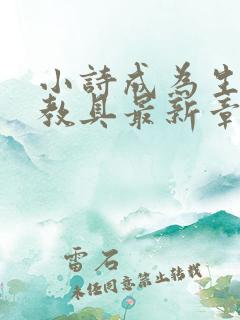 小詩成為生
教具最新章
雷石
未经同意禁止转载